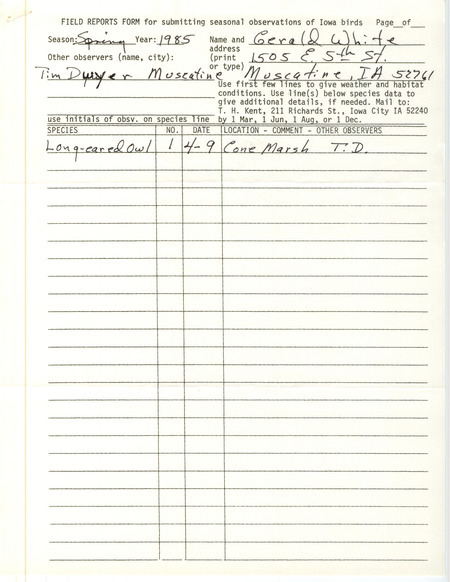 FIELD REPORTS FORM for submitting seasonal observations of Iowa birds Page__of__
Season: Spring Year: 1985 Name and Gerald White
address
Other observers (name, city): (print 1505 E. 5th St.
or type)
Tim Dwyer Muscatine Muscatine, IA 52761
Use first few lines to give weather and habitat
conditions. Use line(s) below species data to
give additional details, if needed. Mail to:
T. H. Kent, 211 Richards St., Iowa City IA 52240
use initials of obsv. on species line by 1 Mar, 1 Jun, 1 Aug, or 1 Dec.
SPECIES NO. DATE LOCATION - COMMENT - OTHER OBSERVERS
Long-eared Owl 1 4-9 Cone Marsh T.D.